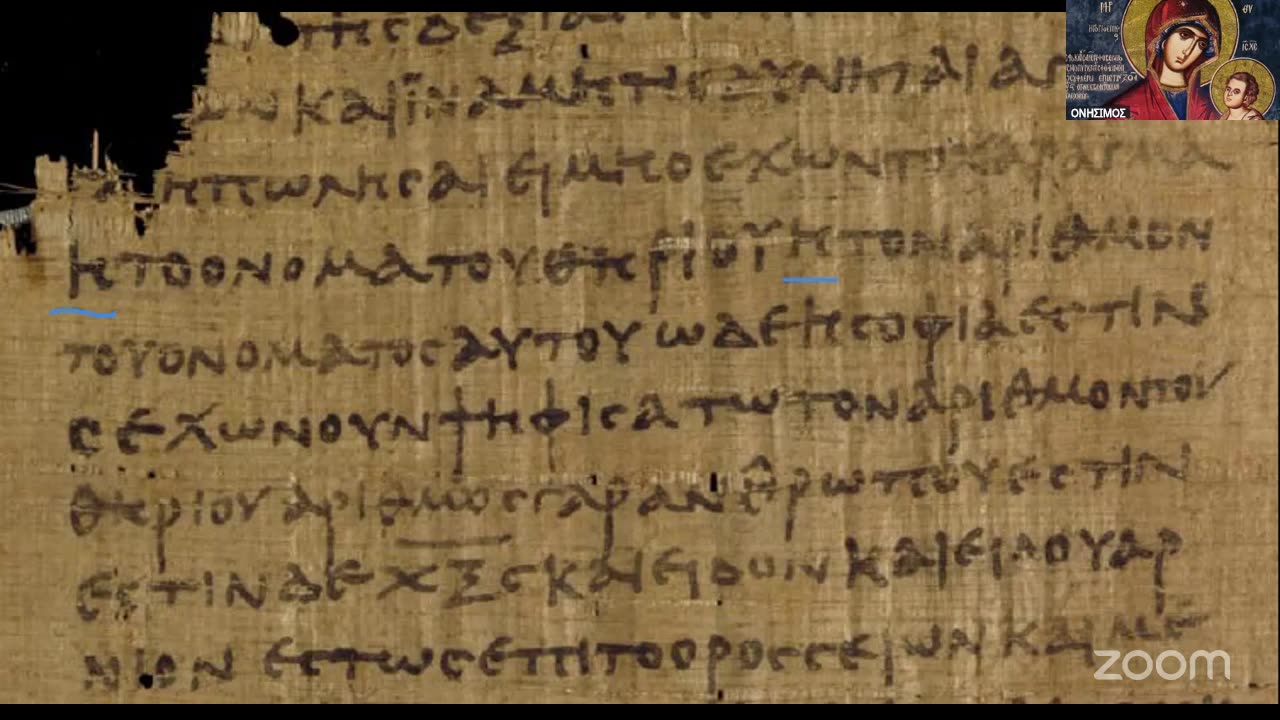 ΤΗϹΔΕΞΙΑ
ΩΝΚΑΙΪΝΑΜΗΤΙϹΔΥΝΗΤΑΙΑΓ
ΗΠΩΛΗϹΑΙΕΙΜΗΟΕΧΩΝΤΟΧΑΡΑΓΜΑ
ΗΤΟΟΝΟΜΑΤΟΥΘΗΡΙΟΥΗΤΟΝΑΡΙΘΜΟΝ
ΤΟΥΟΝΟΜΑΤΟϹΑΥΤΟΥΩΔΕΗϹΟΦΙΑΕϹΤΙΝΟ
ϹΕΧΩΝΝΟΥΝΨΗΦΙϹΑΤΩΤΟΝΑΡΙΘΜΟΝΤΟΥ
ΘΗΡΙΟΥΑΡΙΘΜΟϹΓΑΡΑΝΘΡΩΠΟΥΕϹΤΙΝ
ΕϹΤΙΝΔΕΧΞϚΚΑΙΕΙΔΟΝΚΑΙΕΙΔΟΥΑΡ
ΝΙΟΝΕϹΤΩϹΕΠΙΤΟΟΡΟϹϹΕΙΩΝΚΑΙΜΕ
ΜΡ ΘΥ
ΙϹ ΧϹ
ΟΝΗΣΙΜΟΣ
zoom